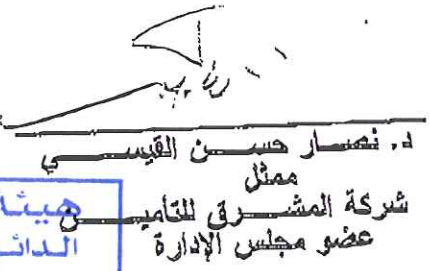 د. نصار حسن القيسي
ممثل
شركة المشرق للتأمين
عضو مجلس الإدارة
هيئة
الدائ